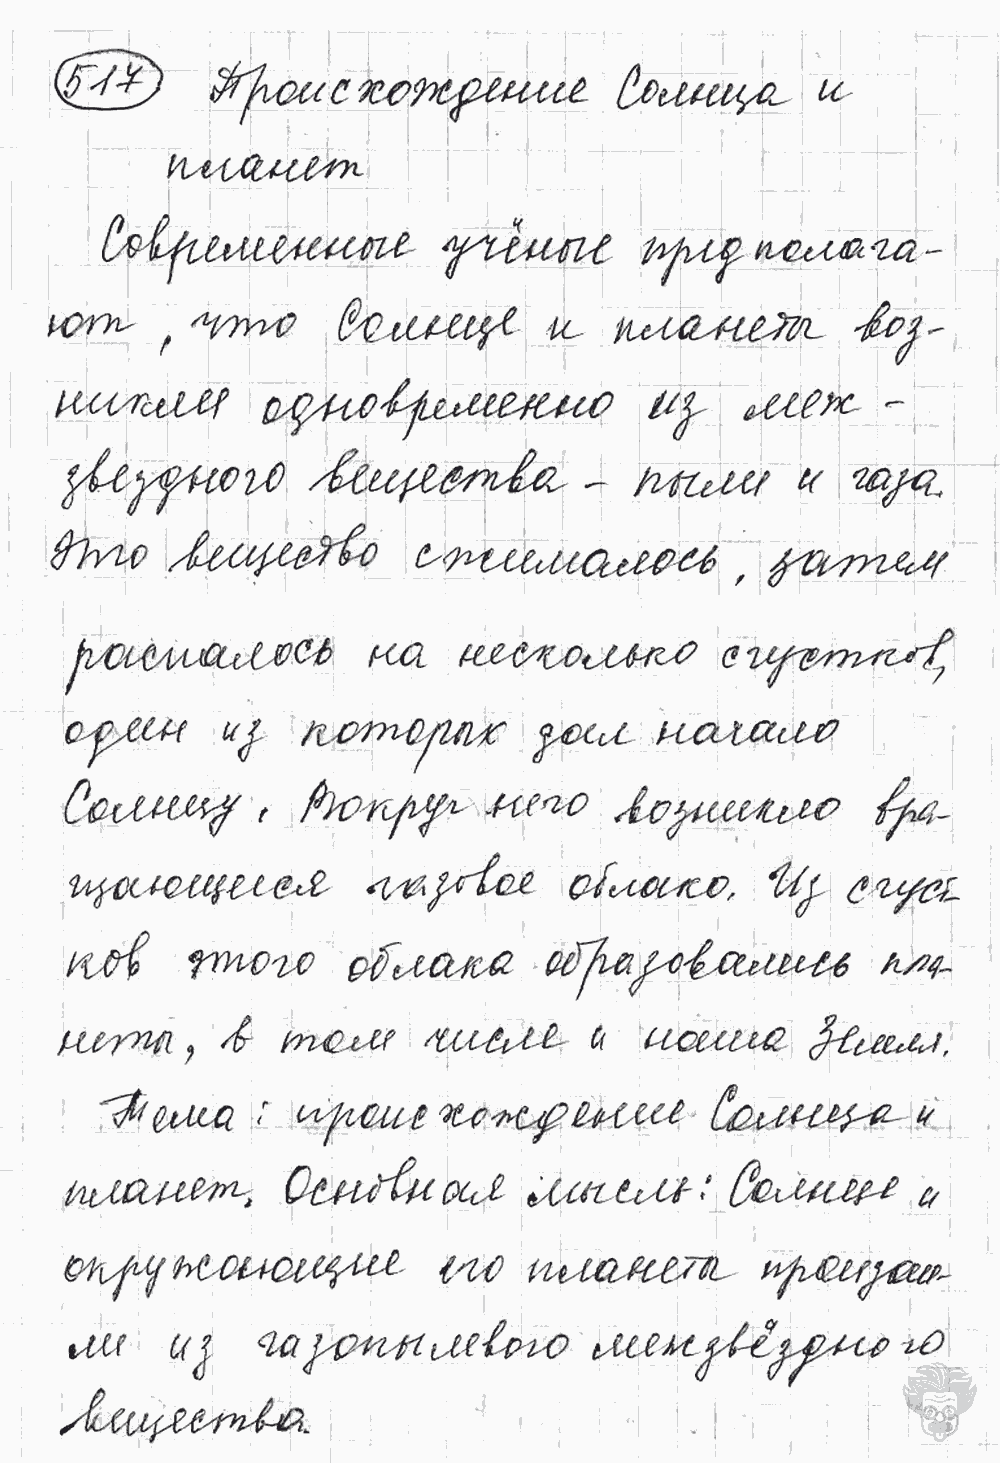 517 Происхождение Солнца и
планет
Современные учёные предполага-
ют, что Солнце и планеты воз-
никли одновременно из меж-
звездного вещества - пыли и газа.
Это вещество сжималось, затем
распалось на несколько сгустков,
один из которых дал начало
Солнцу. Вокруг него возникло вра-
щающееся газовое облако. Из сгуст-
ков этого облака образовались пла-
неты, в том числе и наша Земля.
Тема: происхождение Солнца и
планет. Основная мысль: Солнце и
окружающие его планеты произош-
ли из газопылевого межзвёздного
вещества.